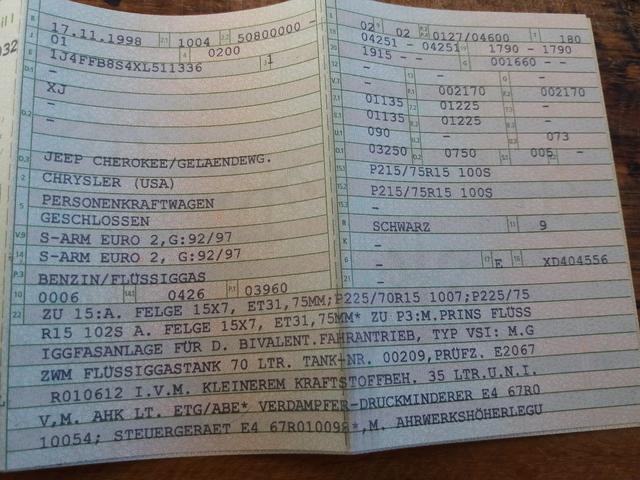 17.11.1998 2.1 1004 2.2 50800000 -
01 0200
1J4FFB8S4XL511336 1
-
XJ
-
-
D.3 JEEP CHEROKEE/GELAENDEWG.
2 CHRYSLER (USA)
5 PERSONENKRAFTWAGEN
GESCHLOSSEN
V.9 S-ARM EURO 2,G:92/97
14 S-ARM EURO 2,G:92/97
P.3 BENZIN/FLÜSSIGGAS
10 0006 14.1 0426 P.1 03960
02 02 P.2 0127/04600 T 180
04251 - 04251 1790 - 1790
1915 - - G 001660 - -
- - -
- 002170 002170
01135 01225 -
01135 01225 -
090 - 073
03250 0750 005 -
P215/75R15 100S
P215/75R15 100S
-
R SCHWARZ 11 9
K -
6 - 17 E 16 XD404556
21 -
22 ZU 15:A. FELGE 15X7, ET31,75MM;P225/70R15 100T;P225/75
R15 102S A. FELGE 15X7, ET31,75MM* ZU P3:M.PRINS FLÜSS
IGGFASANLAGE FÜR D. BIVALENT.FAHRANTRIEB, TYP VSI: M.G
ZWM FLÜSSIGGASTANK 70 LTR. TANK-NR. 00209,PRÜFZ. E2067
R010612 I.V.M. KLEINEREM KRAFTSTOFFBEH. 35 LTR.U.N.I.
V,M. AHK LT. ETG/ABE* VERDAMPFER-DRUCKMINDERER E4 67R0
10054; STEUERGERAET E4 67R010098*,M. AHRWERKSHÖHERLEGU